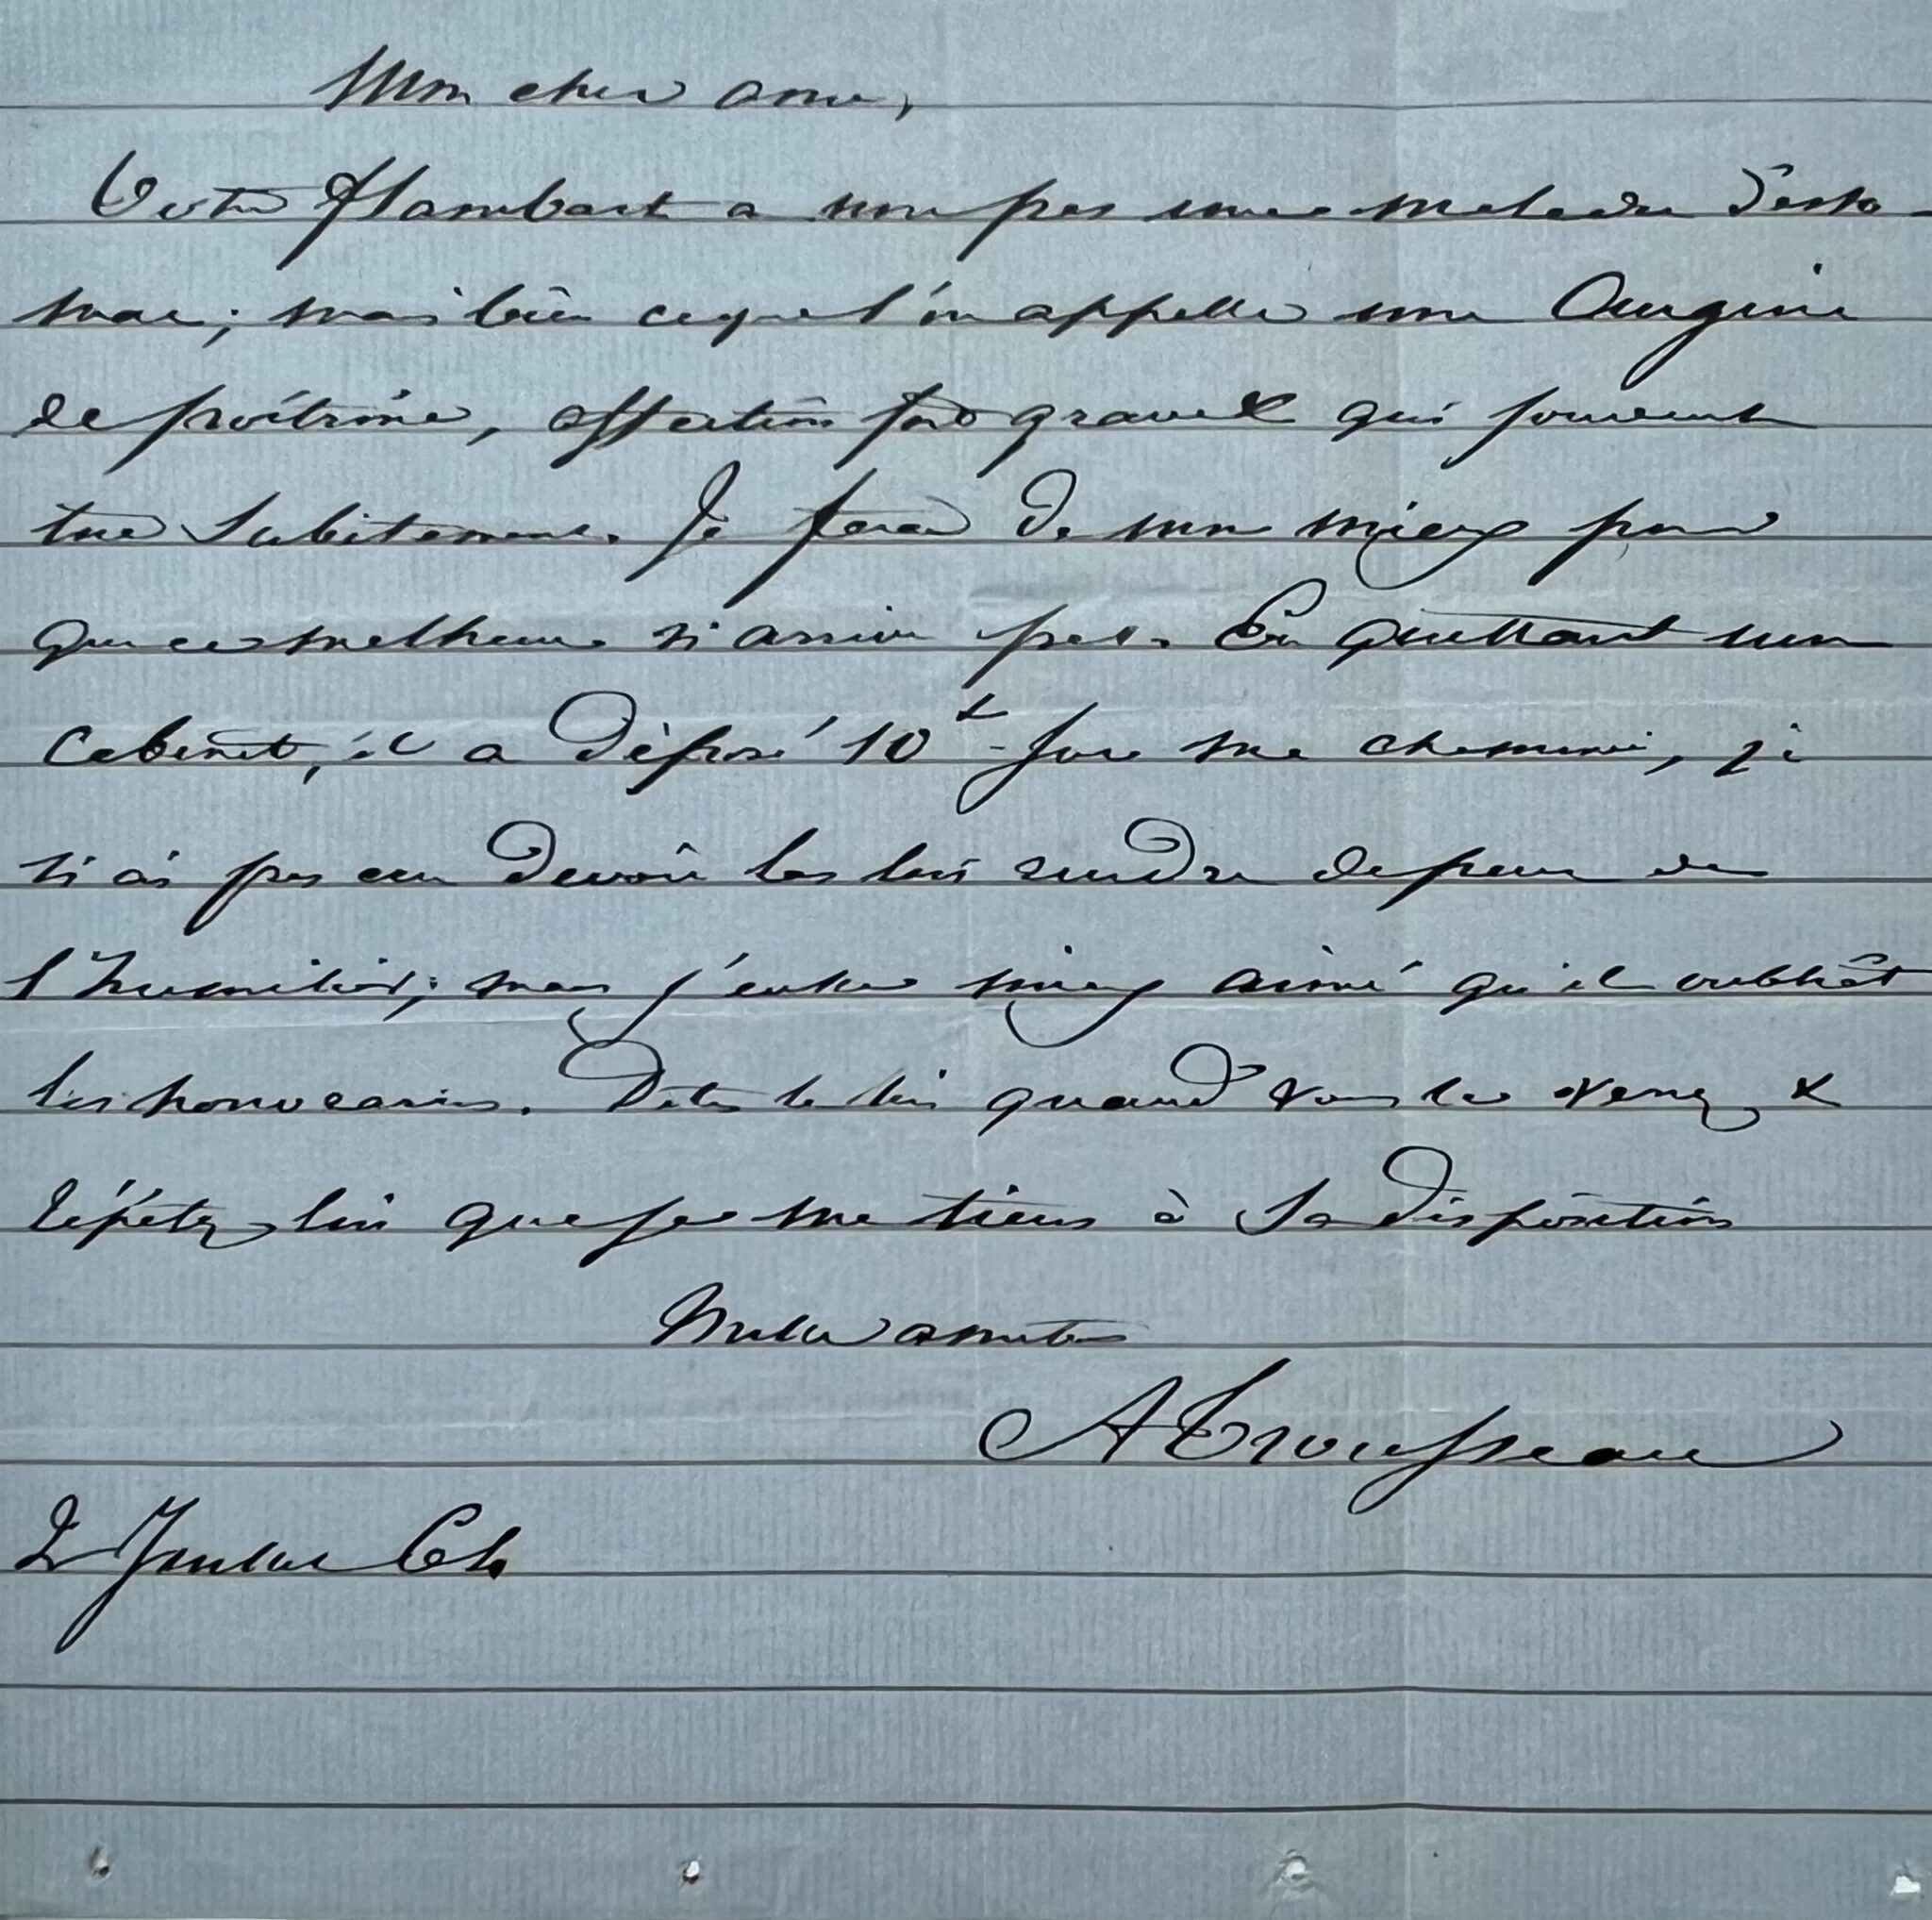 Mon cher ami,
Votre Flambart a non pas une maladie d'esto-
mac; mais bien ce que l'on appelle une Angine
de poitrine, affection fort grave & qui souvent
tue subitement. Je ferai de mon mieux pour
que ce malheur n'arrive pas. En quittant mon
cabinet, il a déposé 10 f sur ma cheminée, je
n'ai pas cru devoir les lui rendre de peur de
l'humilier; mais j'eusse mieux aimé qu'il oubliât
les honoraires. Dites le lui quand vous le verrez &
répétez lui que je me tiens à sa disposition
Mille amitiés
A Trousseau
2